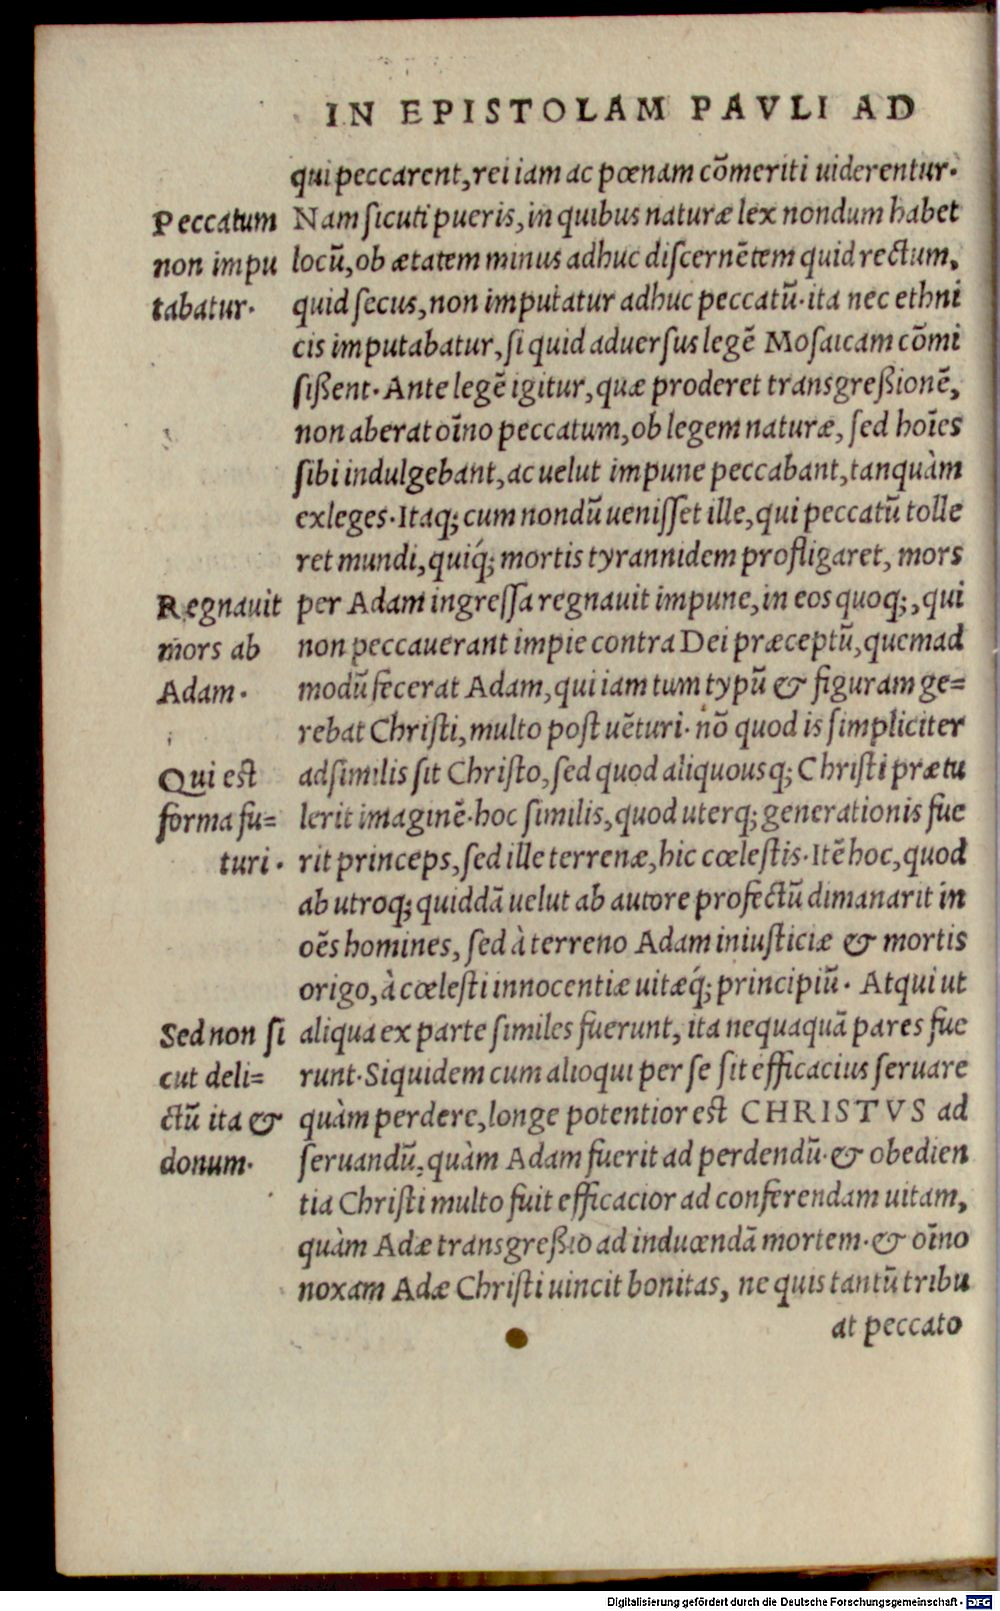 IN EPISTOLAM PAVLI AD
qui peccarent, rei iam ac pœnam cõmeriti uiderentur.
Nam ſicuti pueris, in quibus naturæ lex nondum habet
locũ, ob ætatem minus adhuc diſcernẽtem quid rectum,
quid ſecus, non imputatur adhuc peccatũ. ita nec ethni
cis imputabatur, ſi quid aduerſus legẽ Moſaicam cõmi
ſißent. Ante legẽ igitur, quæ proderet transgreßionẽ,
non aberat oĩno peccatum, ob legem naturæ, ſed hoĩes
ſibi indulgebant, ac uelut impune peccabant, tanquàm
exleges. Itaq; cum nondũ ueniſſet ille, qui peccatũ tolle
ret mundi, quiq́; mortis tyrannidem profligaret, mors
per Adam ingreſſa regnauit impune, in eos quoq;, qui
non peccauerant impie contra Dei præceptũ, quemad
modũ fecerat Adam, qui iam tum typũ & figuram ge=
rebat Chriſti, multo poſt uẽturi. nõ quod is ſimpliciter
adſimilis ſit Chriſto, ſed quod aliquousq; Chriſti prætu
lerit imaginẽ. hoc ſimilis, quod uterq; generationis fue
rit princeps, ſed ille terrenæ, hic cœleſtis. Itẽ hoc, quod
ab utroq; quiddã uelut ab autore profectũ dimanarit in
oẽs homines, ſed à terreno Adam iniuſticiæ & mortis
origo, à cœleſti innocentiæ uitæq́; principiũ. Atqui ut
aliqua ex parte ſimiles fuerunt, ita nequaquã pares fue
runt. Siquidem cum alioqui per ſe ſit efficacius ſeruare
quàm perdere, longe potentior eſt CHRISTVS ad
ſeruandũ, quàm Adam fuerit ad perdendũ. & obedien
tia Chriſti multo fuit efficacior ad conferendam uitam,
quàm Adæ transgreßio ad inducendã mortem. & oĩno
noxam Adæ Chriſti uincit bonitas, ne quis tantũ tribu
at peccato
Peccatum
non impu
tabatur.
Regnauit
mors ab
Adam.
Qui eſt
forma fu=
turi.
Sed non ſi
cut deli=
ctũ ita &
donum.
Digitalisierung gefördert durch die Deutsche Forschungsgemeinschaft - DFG